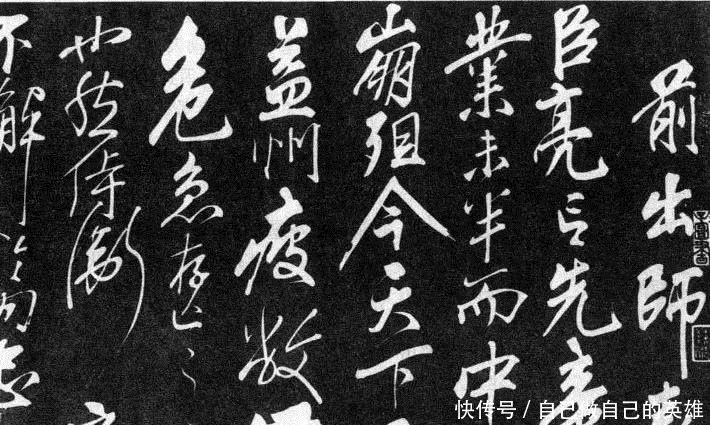 前出師表
臣亮言先帝
業未半而中
崩殂今天下
益州疲敝
危急存亡之
也然侍衛
不懈於內忠
快传号 / 自己将自己的英雄